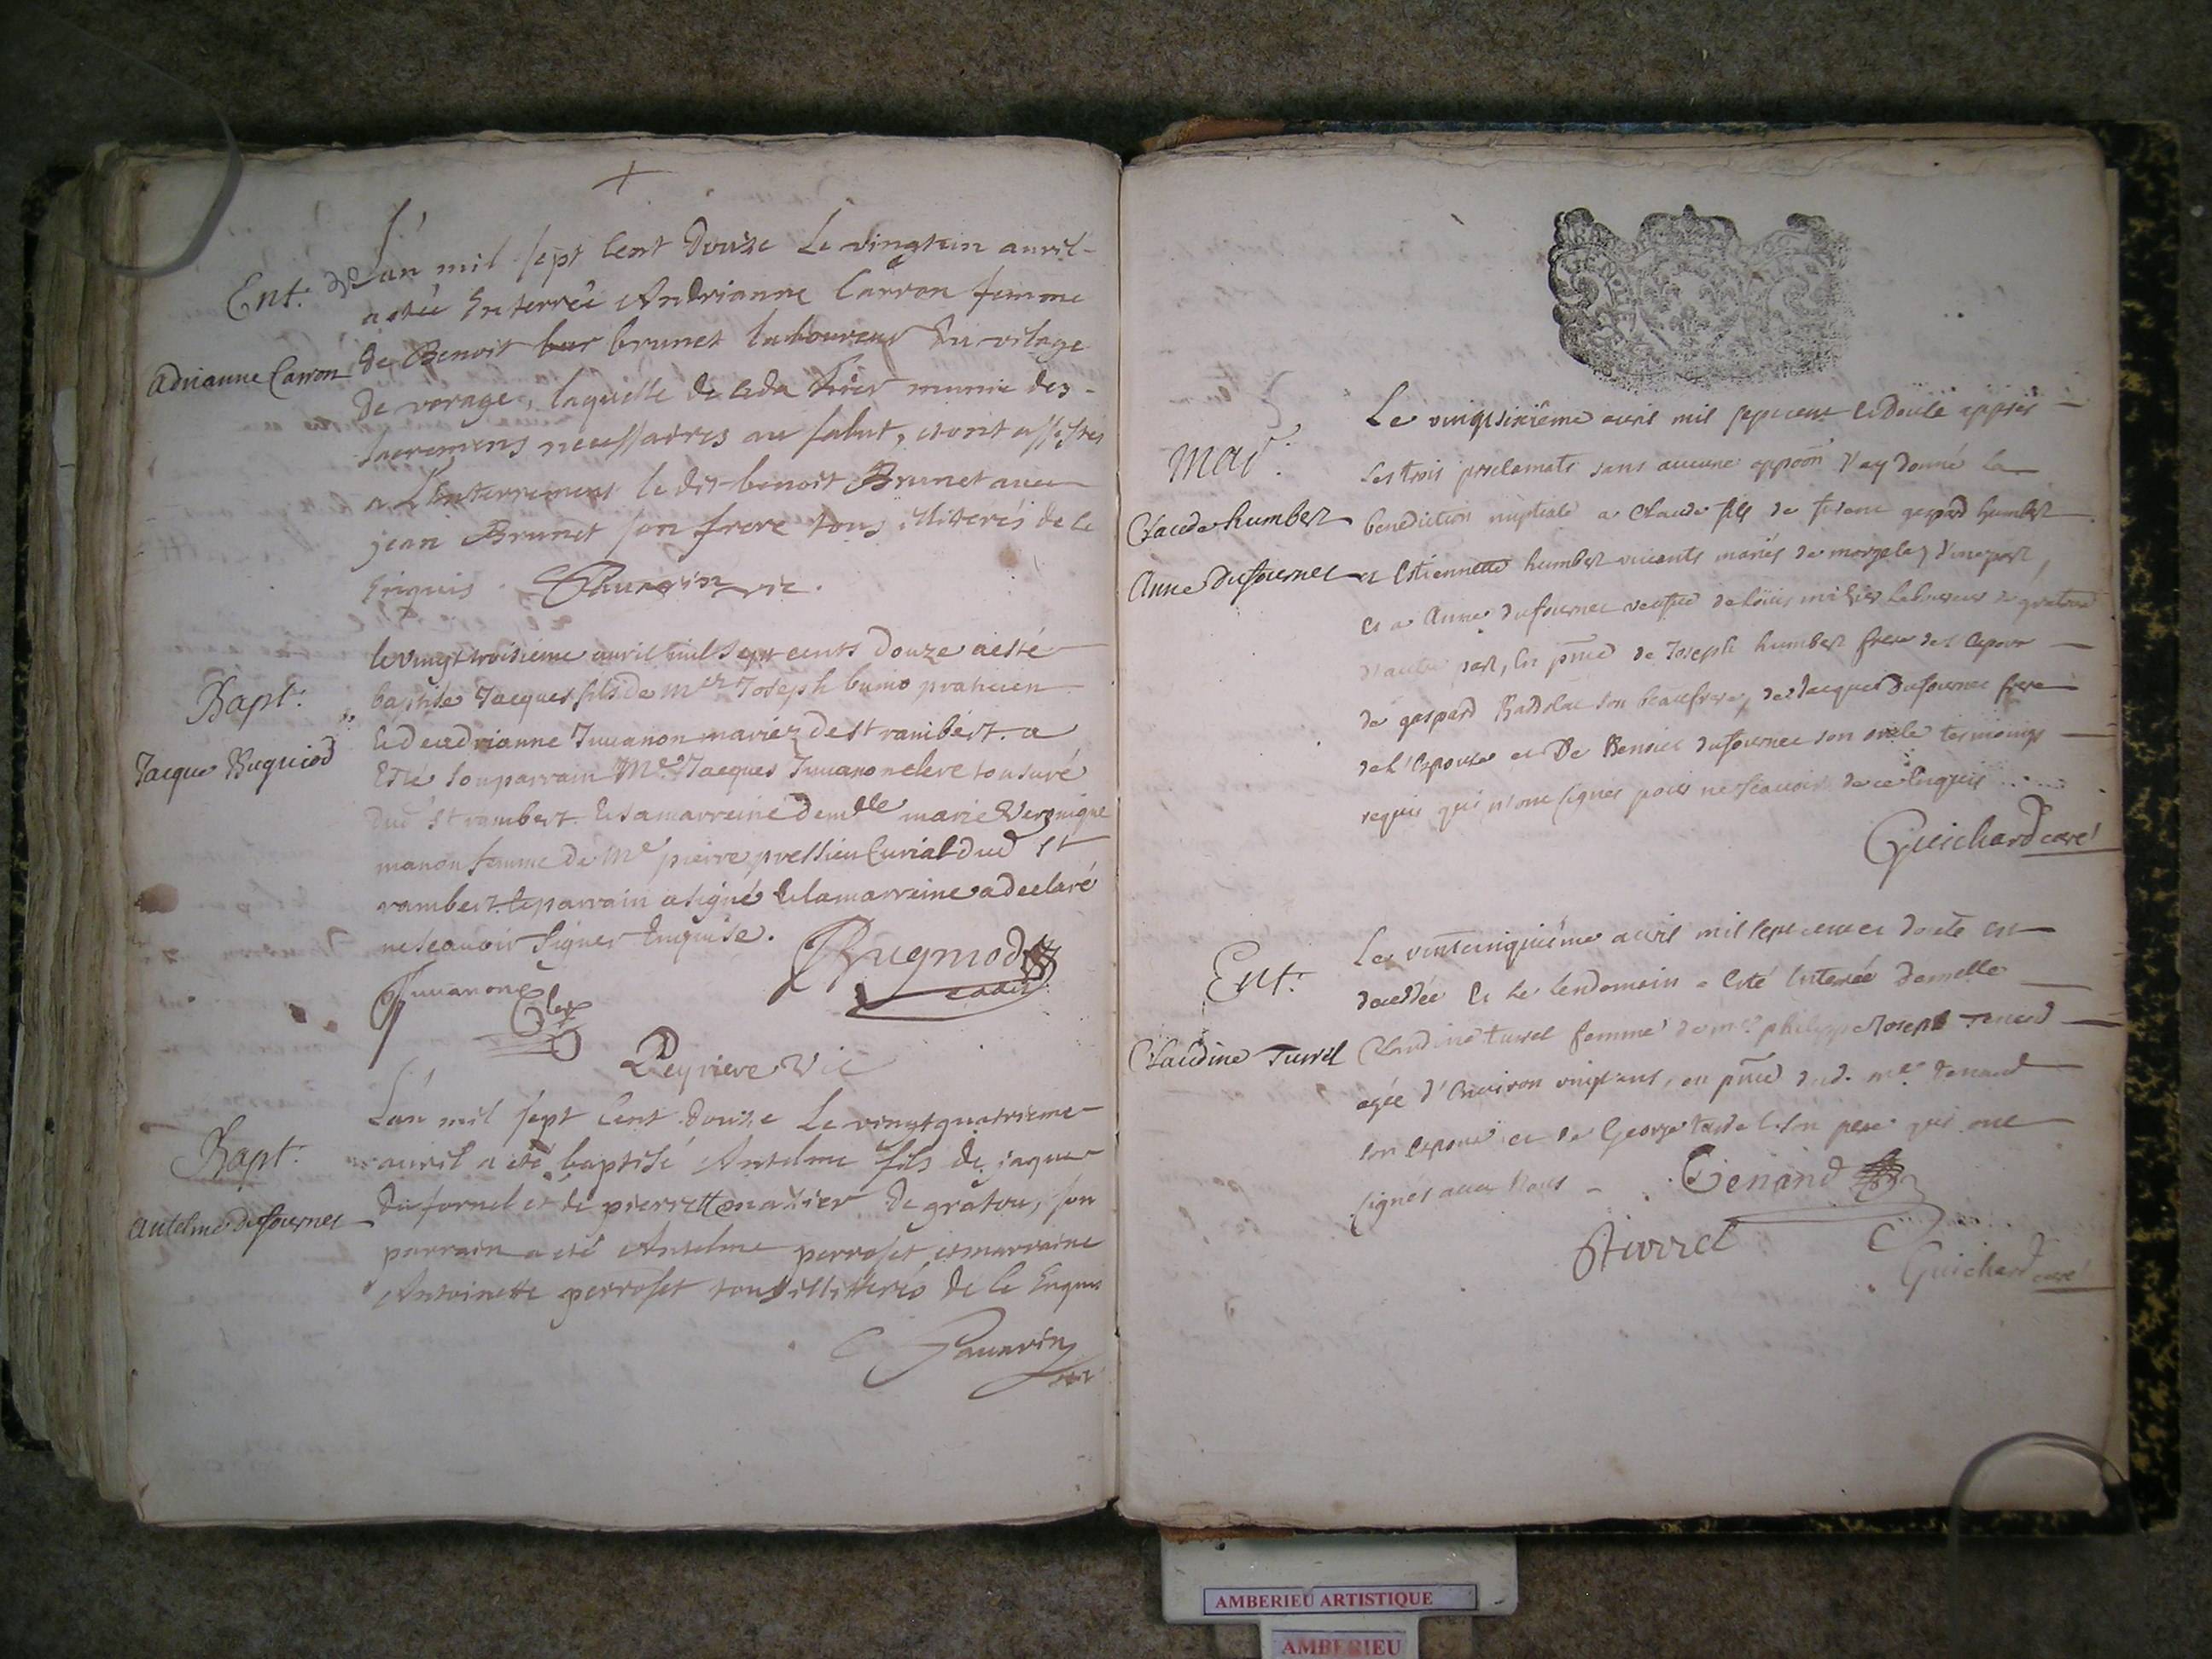 Ent. de
Adrianne Carron
L'an mil sept Cent Douze Le vingtun avril
a etée Enterrée Andrianne Carron femme
de Benoit bur brunet laboureur du vilage
De vorage, laquelle deceda hier munie des
Sacremens necessaires au salut, etoint assistés
a L'enterrement le dit benoit Brunet avec
jean Brunet son frere tous illiterés de le
Enquis.
Bapt.
Jacque Bugniod
le vingt troisieme avril mil sept cents douze a esté
baptisé Jacques fils de Mtre Joseph praticien
Et de adrianne Juvanon mariez de st rambert. a
Esté son parrain Me Jacques Juvanon clerc tonsuré
dud st rambert. Et sa marreine demlle marie Veronique
manon femme de Me pierre Curial dud st
rambert. le parrain a signé Et la marreine a declaré
ne scauoir signer Enquise.
Bugniod
Juuanon Clerc
Peyriere Vic
Bapt.
Antelme dufournet
L'an mil sept Cent Douze Le vingtquatrieme
avril a eté baptisé Antelme fils de jaque
Dufornel et de pierrette de gratou, son
parrain a eté Antelme perroset et marraine
Antoinette perroset tous illitterés de le Enquis
Mar.
Claude humbert
Anne Dufournet
Le vingtsixiéme avril mil sept cent et Douze apprés
Les trois proclamats sans aucune oppoõn J'ay Donné la
benediction nuptiale a Claude fils de gaspard humbert
et Estiennette humbert vivants mariés de morgelas d'une part,
Et a Anne dufournet veufue de Loüis Laboureur de gratoux
d'autre part, En pñce de Joseph humbert frere de l'Epoux
de gaspard son beaufrere, de Jacques Dufournet frere
de L'Epouse et De Benoist dufournet son oncle tesmoings
requis qui n'ont signés pour ne sçauoir de ce Enquis
Guichard curé
Ent.
Claudine Turrel
Le vintcinquiéme avril mil sept cent et douze est
decedée Et Le lendemain a Esté Enterrée Demelle
Claudine turrel femme de me philippe Joseph Tenand
agée d'Environ vingt ans, en pñce dud. me Tenand
son Epoux et de George turrel son pere qui ont
signés avec Nous
Tenand
Turrel
Guichard curé
AMBERIEU ARTISTIQUE
AMBERIEU